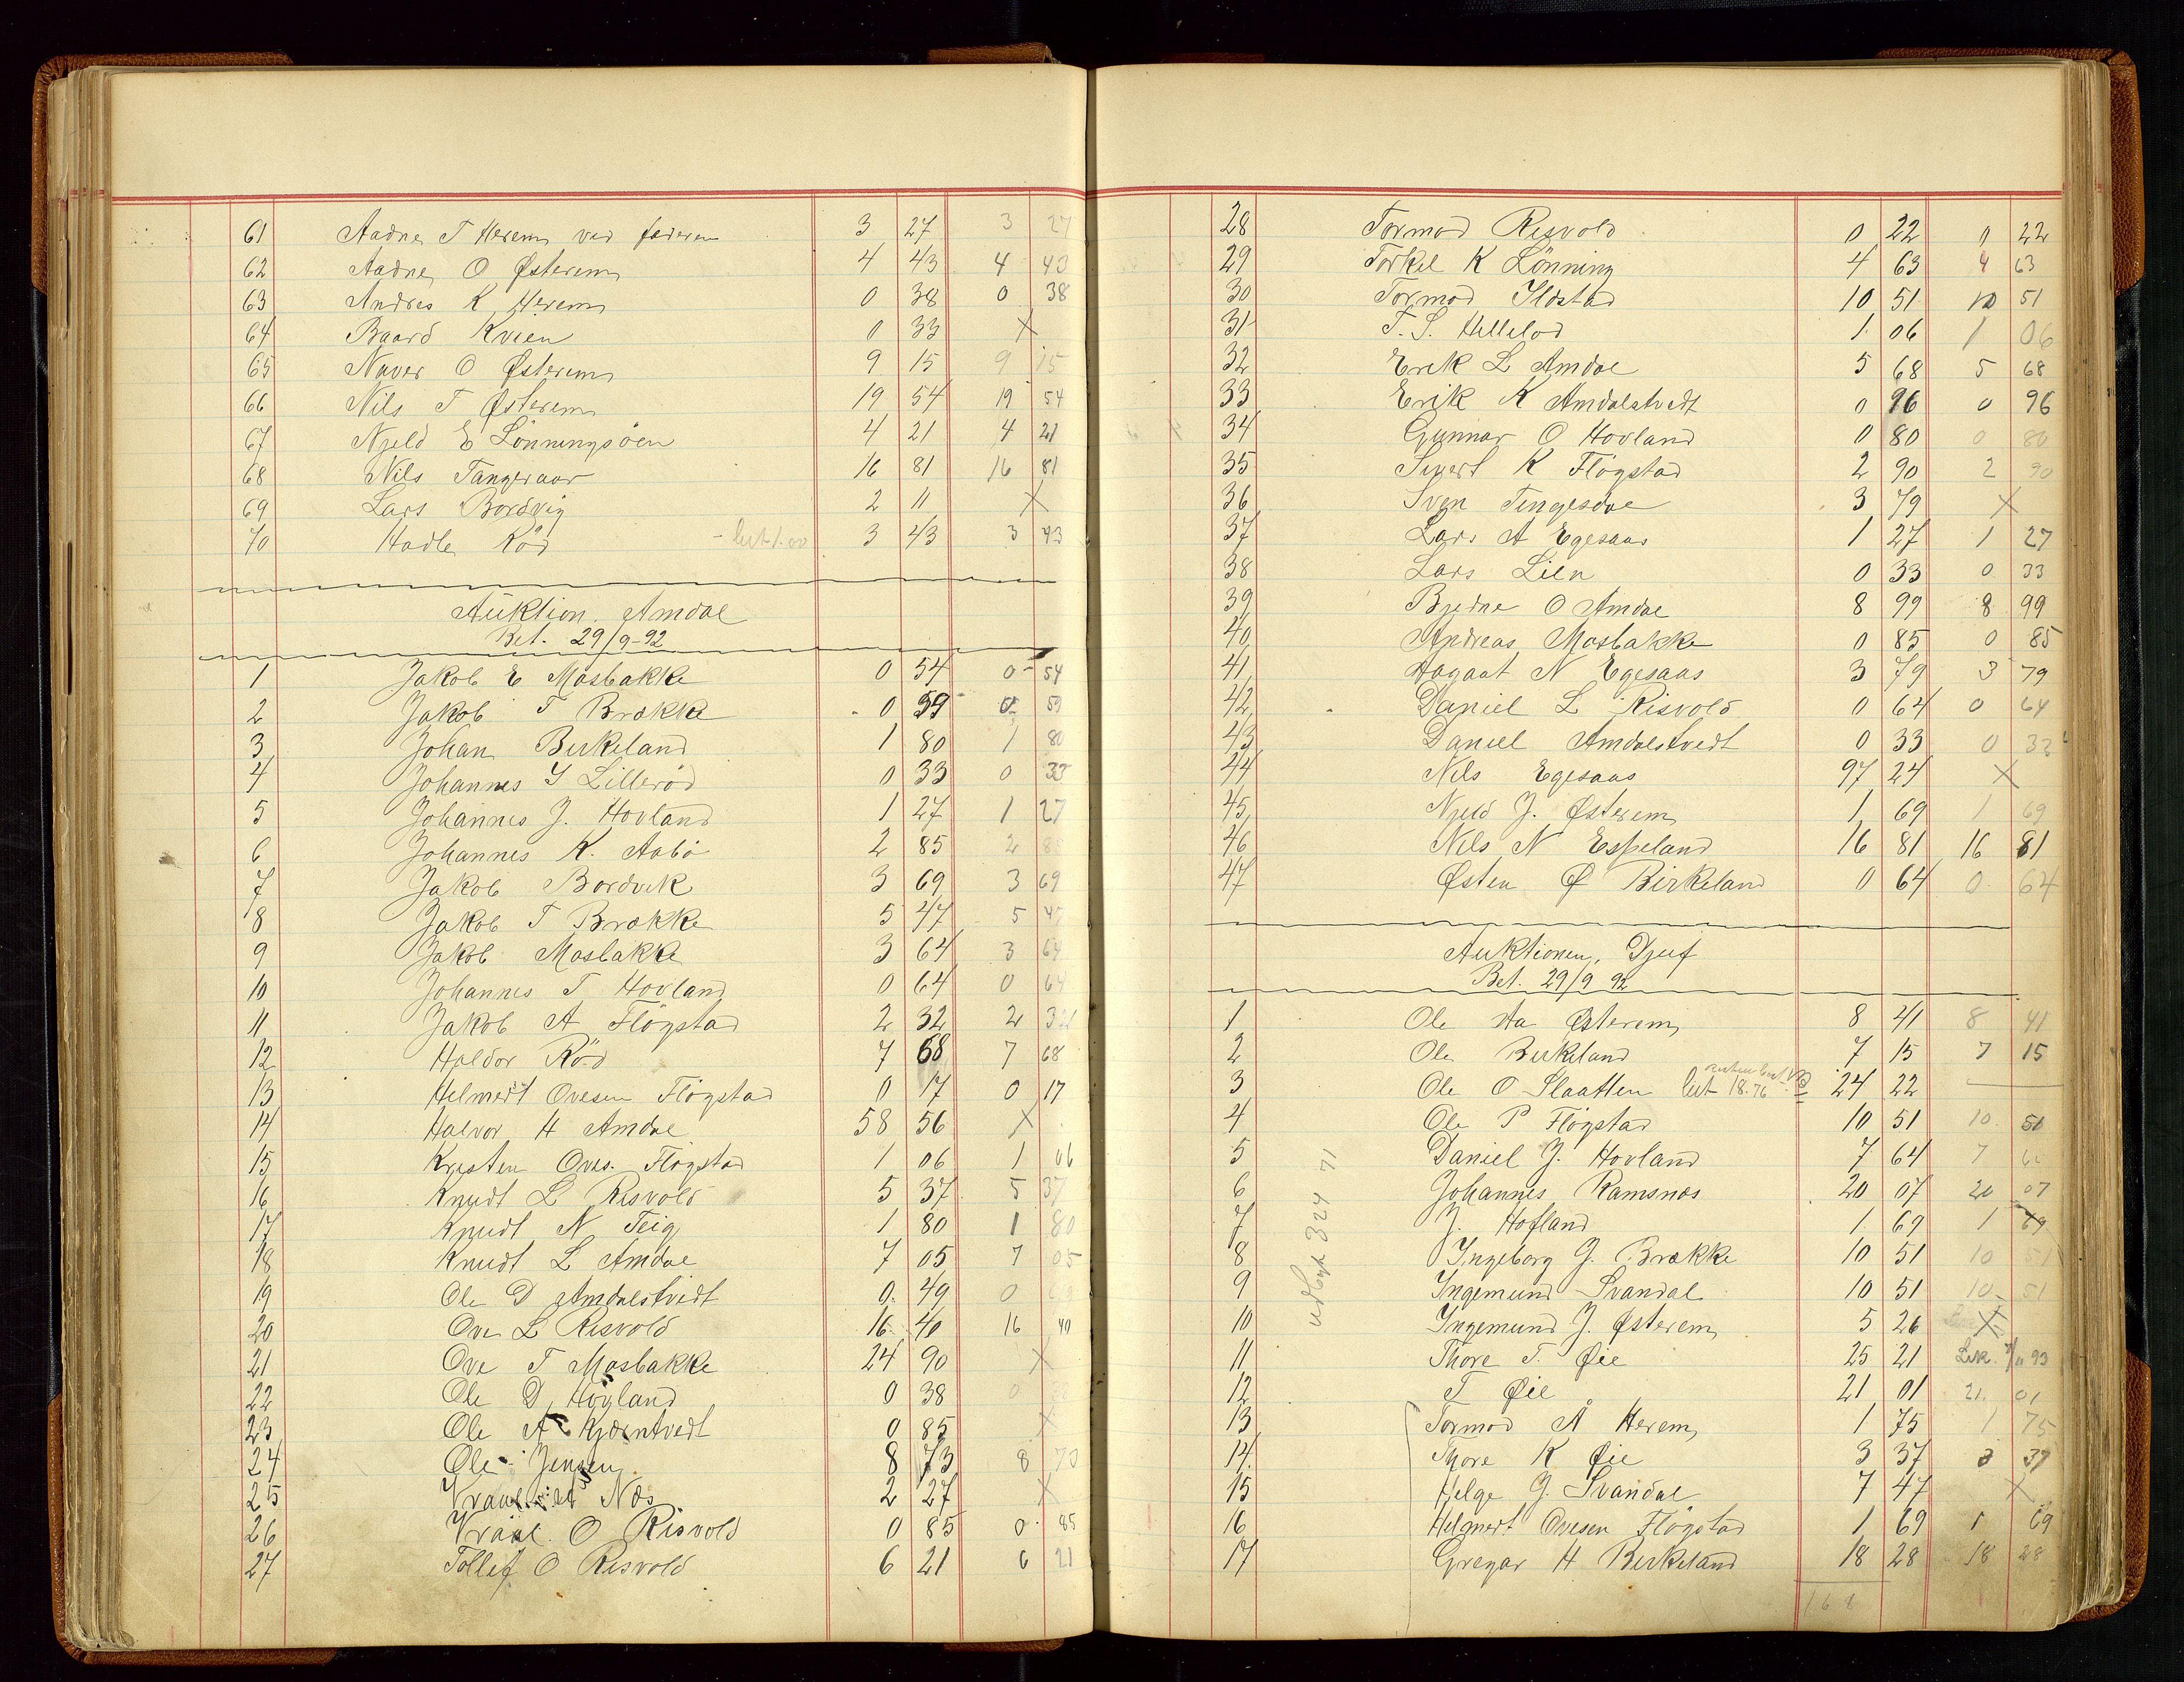 61 Aadne T Herem ved faderen 3 27 3 27
62 Aadne O Østerem 4 43 4 43
63 Andres K Herem 0 38 0 38
64 Baard Kvien 0 33 X
65 Naver O Østerem 9 15 9 15
66 Nils T Østerem 19 54 19 54
67 Njeld E Lönningsöen 4 21 4 21
68 Nils Tangeraas 16 81 16 81
69 Lars Bordvig 2 11 X
70 Hadle Röd 3 43 3 43
Auktion. Amdal
Bet. 29/9-92
1 Jakob E Mosbakke 0 54 0 54
2 Jakob T Brække 0 59 0 59
3 Johan Birkeland 1 80 1 80
4 Johannes I Lilleröd 0 33 0 33
5 Johannes J. Hovland 1 27 1 27
6 Johannes K. Aabö 2 85 2 85
7 Jakob Bordvik 3 69 3 69
8 Jakob T Brække 5 47 5 47
9 Jakob Mosbakke 3 64 3 64
10 Johannes T Hovland 0 64 0 64
11 Jakob A Flögstad 2 32 2 32
12 Haldor Röd 7 68 7 68
13 Helmert Ovesen Flögstad 0 17 0 17
14 Halvor H Amdal 58 56 X
15 Kristen Oves. Flögstad 1 06 1 06
16 Knudt L Risvold 5 37 5 37
17 Knudt N Teig 1 80 1 80
18 Knudt L Amdal 7 05 7 05
19 Ole D Amdalstvedt 0 49 0
20 Ove L Risvold 16 40 16 40
21 Ove T Mosbakke 24 90 X
22 Ole D. Hövland 0 38 0
23 Ole A Kjærntvedt 0 85 X
24 Ole Jensen 8 73 8 73
25 Næs 2 27 X
26 Vraal. O Risvold 0 85 0 85
27 Tollef O Risvold 6 21 6 21
28 Tormod Risvold 0 22 0 22
29 Torkel K Lönning 4 63 4 63
30 Tormod Ilstad 10 51 10 51
31 T. S. Hellelod 1 06 1 06
32 Erik L Amdal 5 68 5 68
33 Erik K Amdalstvedt 0 96 0 96
34 Gunnar O Hovland 0 80 0 80
35 Sivert K Flögstad 2 90 2 90
36 Sven Tengesdal 3 79 X
37 Lars A Egesaas 1 27 1 27
38 Lars Lien 0 33 0 33
39 Bjedne O Amdal 8 99 8 99
40 Andreas Mosbakke 0 85 0 85
41 Aagaat N Egesaas 3 79 3 79
42 Daniel L Risvold 0 64 0 64
43 Daniel Amdalstvedt 0 33 0 33
44 Nils Egesaas 97 24 X
45 Njeld J. Østerem 1 69 1 69
46 Nils N Espeland 16 81 16 81
47 Østen Ø Birkeland 0 64 0 64
Auktionen, Djuf
Bet. 29/9 92
1 Ole Aa Østerem 8 41 8 41
2 Ole Birkeland 7 15 7 15
3 Ole O Slaatten 18.76 24 22
4 Ole P Flögstad 10 51 10 51
5 Daniel J. Hovland 7 64 7
6 Johannes Ramsnæs 20 07 20 07
7 J. Hofland 1 69 1 69
8 Ingeborg G. Brække 10 51 10 51
9 Ingemund Svandal 10 51 10 51
10 Ingemund J. Østerem 5 26 X
11 Thore T. Øie 25 21
12 T Øie 21 01 21 01
13 Tormod A Herem 1 75 1 75
14 Thore K Øie 3 37 3 37
15 Helge G. Svandal 7 47 X
16 Helmert Ovesen Flögstad 1 69 1 69
17 Gregar H Birkeland 18 28 18 28
168